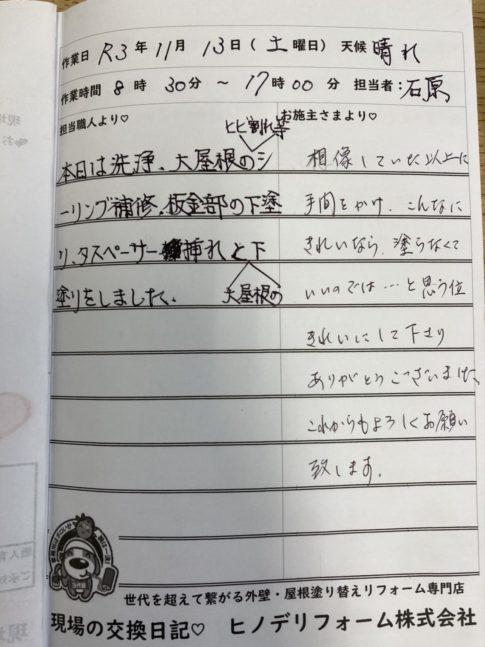 作業日 R3年11月13日(土曜日) 天候 晴れ
作業時間 8時30分 ～ 17時00分 担当者:石原
担当職人より♡
お施主さまより♡
ヒビ割れ等
本日は洗浄、大屋根のシ
ーリング補修、板金部の下塗
り、タスペーサー挿れと下
塗りをしました。
大屋根の
想像していた以上に
手間をかけ、こんなに
きれいなら、塗らなくて
いいのでは…と思う位
きれいにして下さり
ありがとうございました、
これからもよろしくお願い
致します。
世代を超えて繋がる外壁・屋根塗り替えリフォーム専門店
現場の交換日記♡ ヒノデリフォーム株式会社